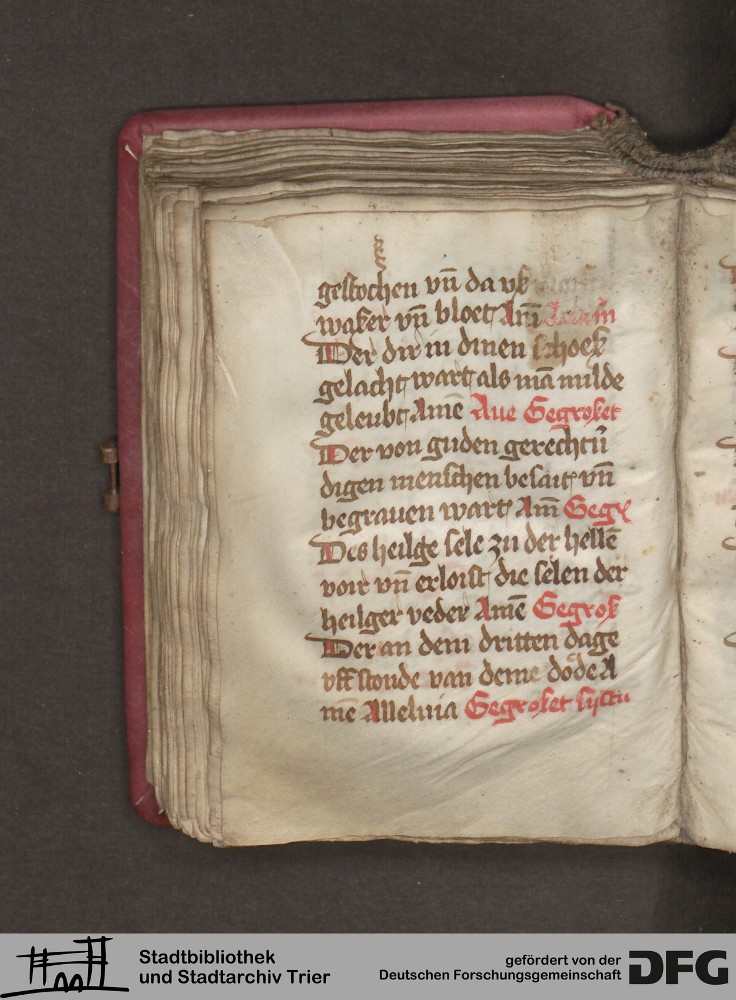 gestochen vn̄ da vß
waßer vn̄ bloet Am̄
Der dir in dinen schoeß
gelacht wart als mā milde
geleubt Amē Aue Gegroßet
Der von guden gerechtū
digen menschen besait vn̄
begrauen wart Am̄ Gegr
Des heilge sele zu der hellē
voir vn̄ erloist die selen der
heilger veder Amē Gegroß
Der an dem dritten dage
vff stonde van deme dode A
mē Alleluia Gegroßet systu
Stadtbibliothek
und Stadtarchiv Trier
gefördert von der
Deutschen Forschungsgemeinschaft
DFG